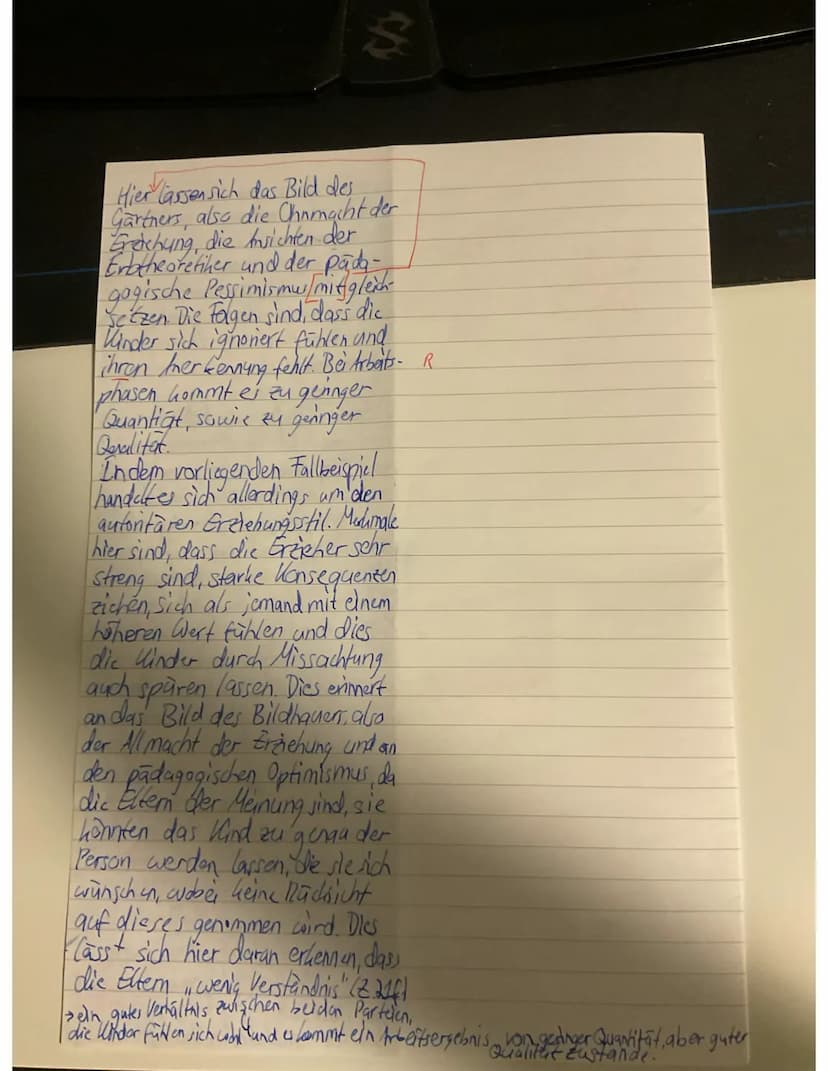 Hier lassen sich das Bild des
Gärtners, also die Ohnmacht der
Erziehung, die Ansichten der
Erbtheoretiker und der päda-
gogische Pessimismus mit gleich-
setzen. Die Folgen sind, dass die
Kinder sich ignoriert fühlen und
ihren Anerkennung fehlt. Bei Arbeits-
R
phasen kommt es zu geringer
Quantität, sowie zu geringer
Qualität.
In dem vorliegenden Fallbeispiel
handelt es sich allerdings um den
autoritären Erziehungsstil. Merkmale
hier sind, dass die Erzieher sehr
streng sind, starke Konsequenzen
ziehen, sich als jemand mit einem
höheren Wert fühlen und dies
die Kinder durch Missachtung
auch spüren lassen. Dies erinnert
an das Bild des Bildhauers, also
der Allmacht der Erziehung und an
den pädagogischen Optimismus, da
die Eltern der Meinung sind, sie
könnten das Kind zu genau der
Person werden lassen, die sie sich
wünschen, wobei keine Rücksicht
auf dieses genommen wird. Dies
lässt sich hier daran erkennen, dass
die Eltern „wenig Verständnis" (Z.21f)
→ ein gutes Verhältnis zwischen beiden Parteien,
die Kinder fühlen sich wohl und es kommt ein Arbeitsergebnis von geringer Quantität, aber guter
Qualität zustande.